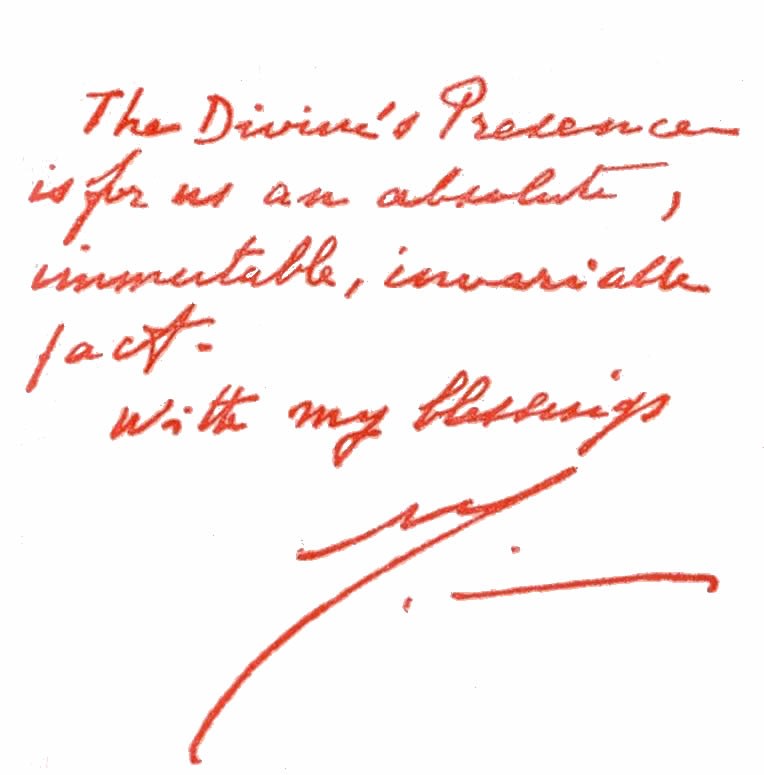 The Divine's Presence
is for us an absolute,
immutable, invariable
fact.
With my blessings